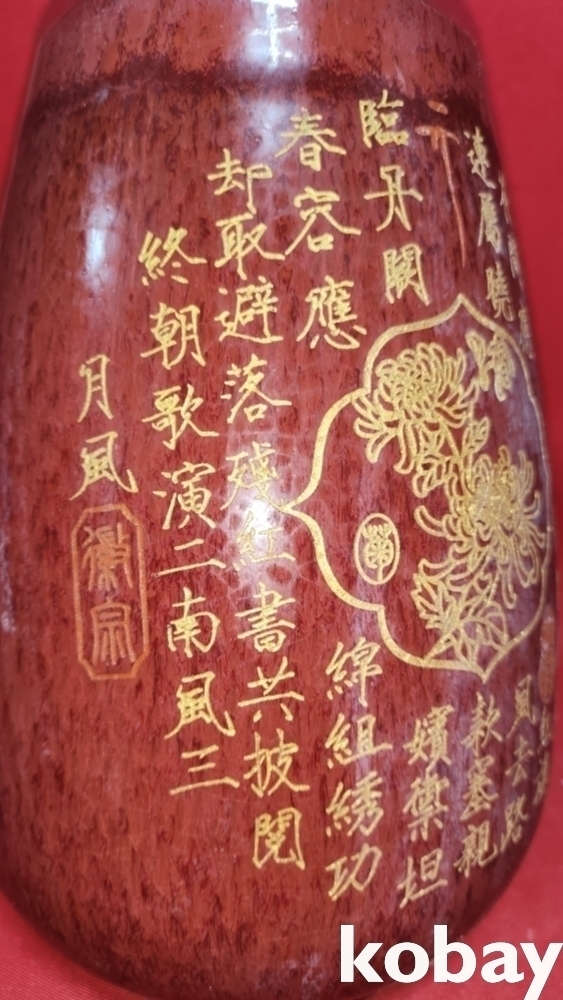 連屬曉
款塞親
臨丹闕
嬪禦坦
春容應
綿組綉功
却取避落殘紅書共披閱
終朝歌演二南風三
月風
徽宗
kobay